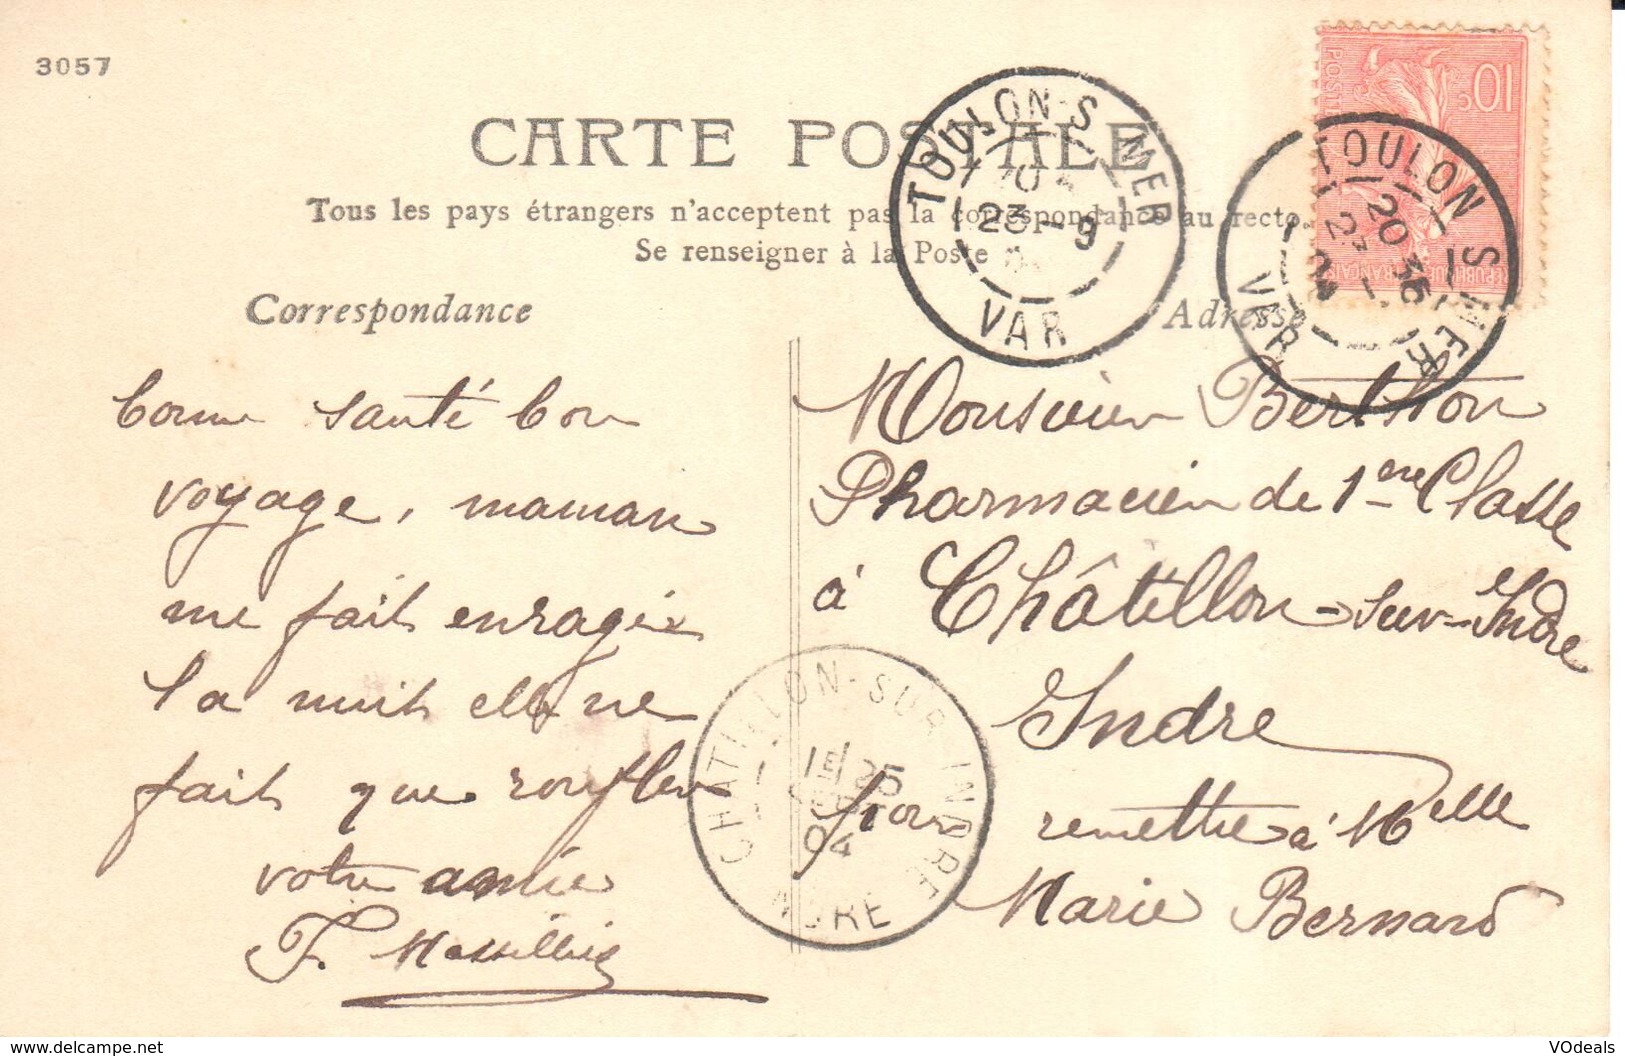 3057
CARTE POSTALE
Tous les pays étrangers n'acceptent pas la correspondance au recto.
Se renseigner à la Poste
Correspondance
Adresse
TOULON-S-MER
23 -9
VAR
TOULON S MER
20
VAR
10c
POSTES
REPUBLIQUE FRANÇAISE
bonne santé bon
voyage, maman
me fait enragée
la nuit elle ne
fait que ronfler
votre amie
F.
Monsieur Berthon
Pharmacien de 1ère Classe
à Châtillon-sur-Indre
Indre
pour remettre à Melle
Marie Bernard
CHATILLON-SUR-INDRE
1E/25
SEPT
04
INDRE
www.delcampe.net
VOdeals